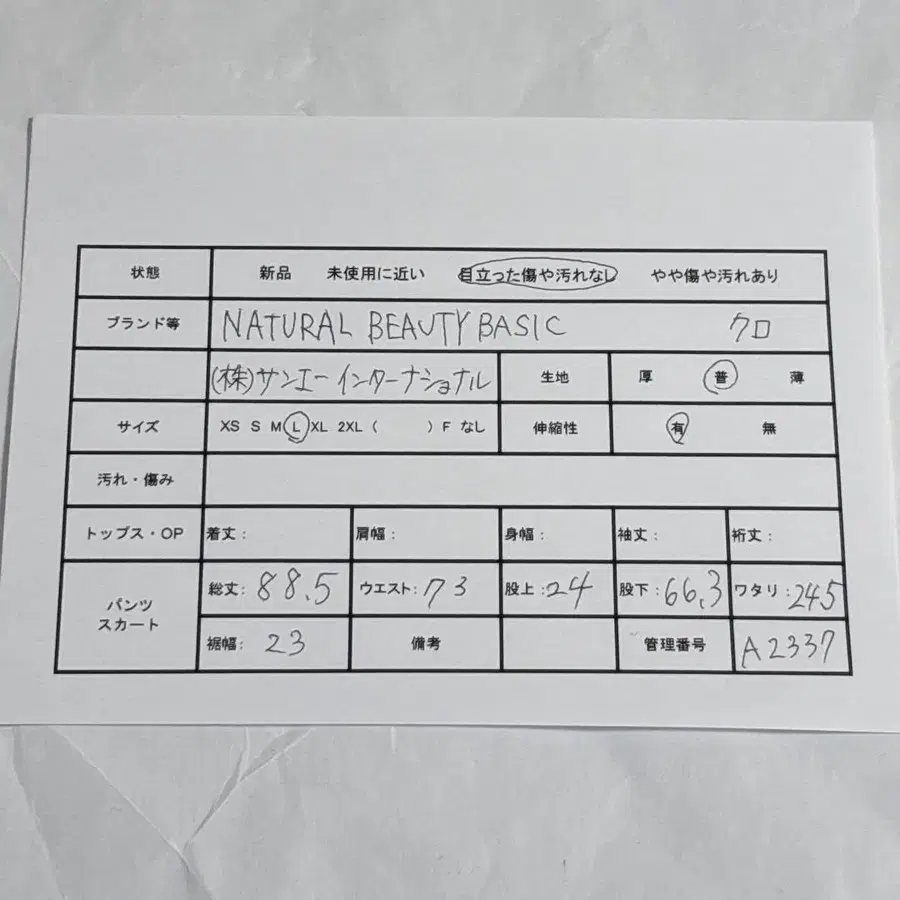 状態 新品 未使用に近い 目立った傷や汚れなし やや傷や汚れあり
ブランド等 NATURAL BEAUTY BASIC クロ
(株)サンエーインターナショナル 生地 厚 普 薄
サイズ XS S M L XL 2XL ( ) F なし 伸縮性 有 無
汚れ・傷み
トップス・OP 着丈: 肩幅: 身幅: 袖丈: 裄丈:
パンツ スカート 総丈: 88.5 ウエスト: 73 股上: 24 股下: 66.3 ワタリ: 24.5
裾幅: 23 備考 管理番号 A2337